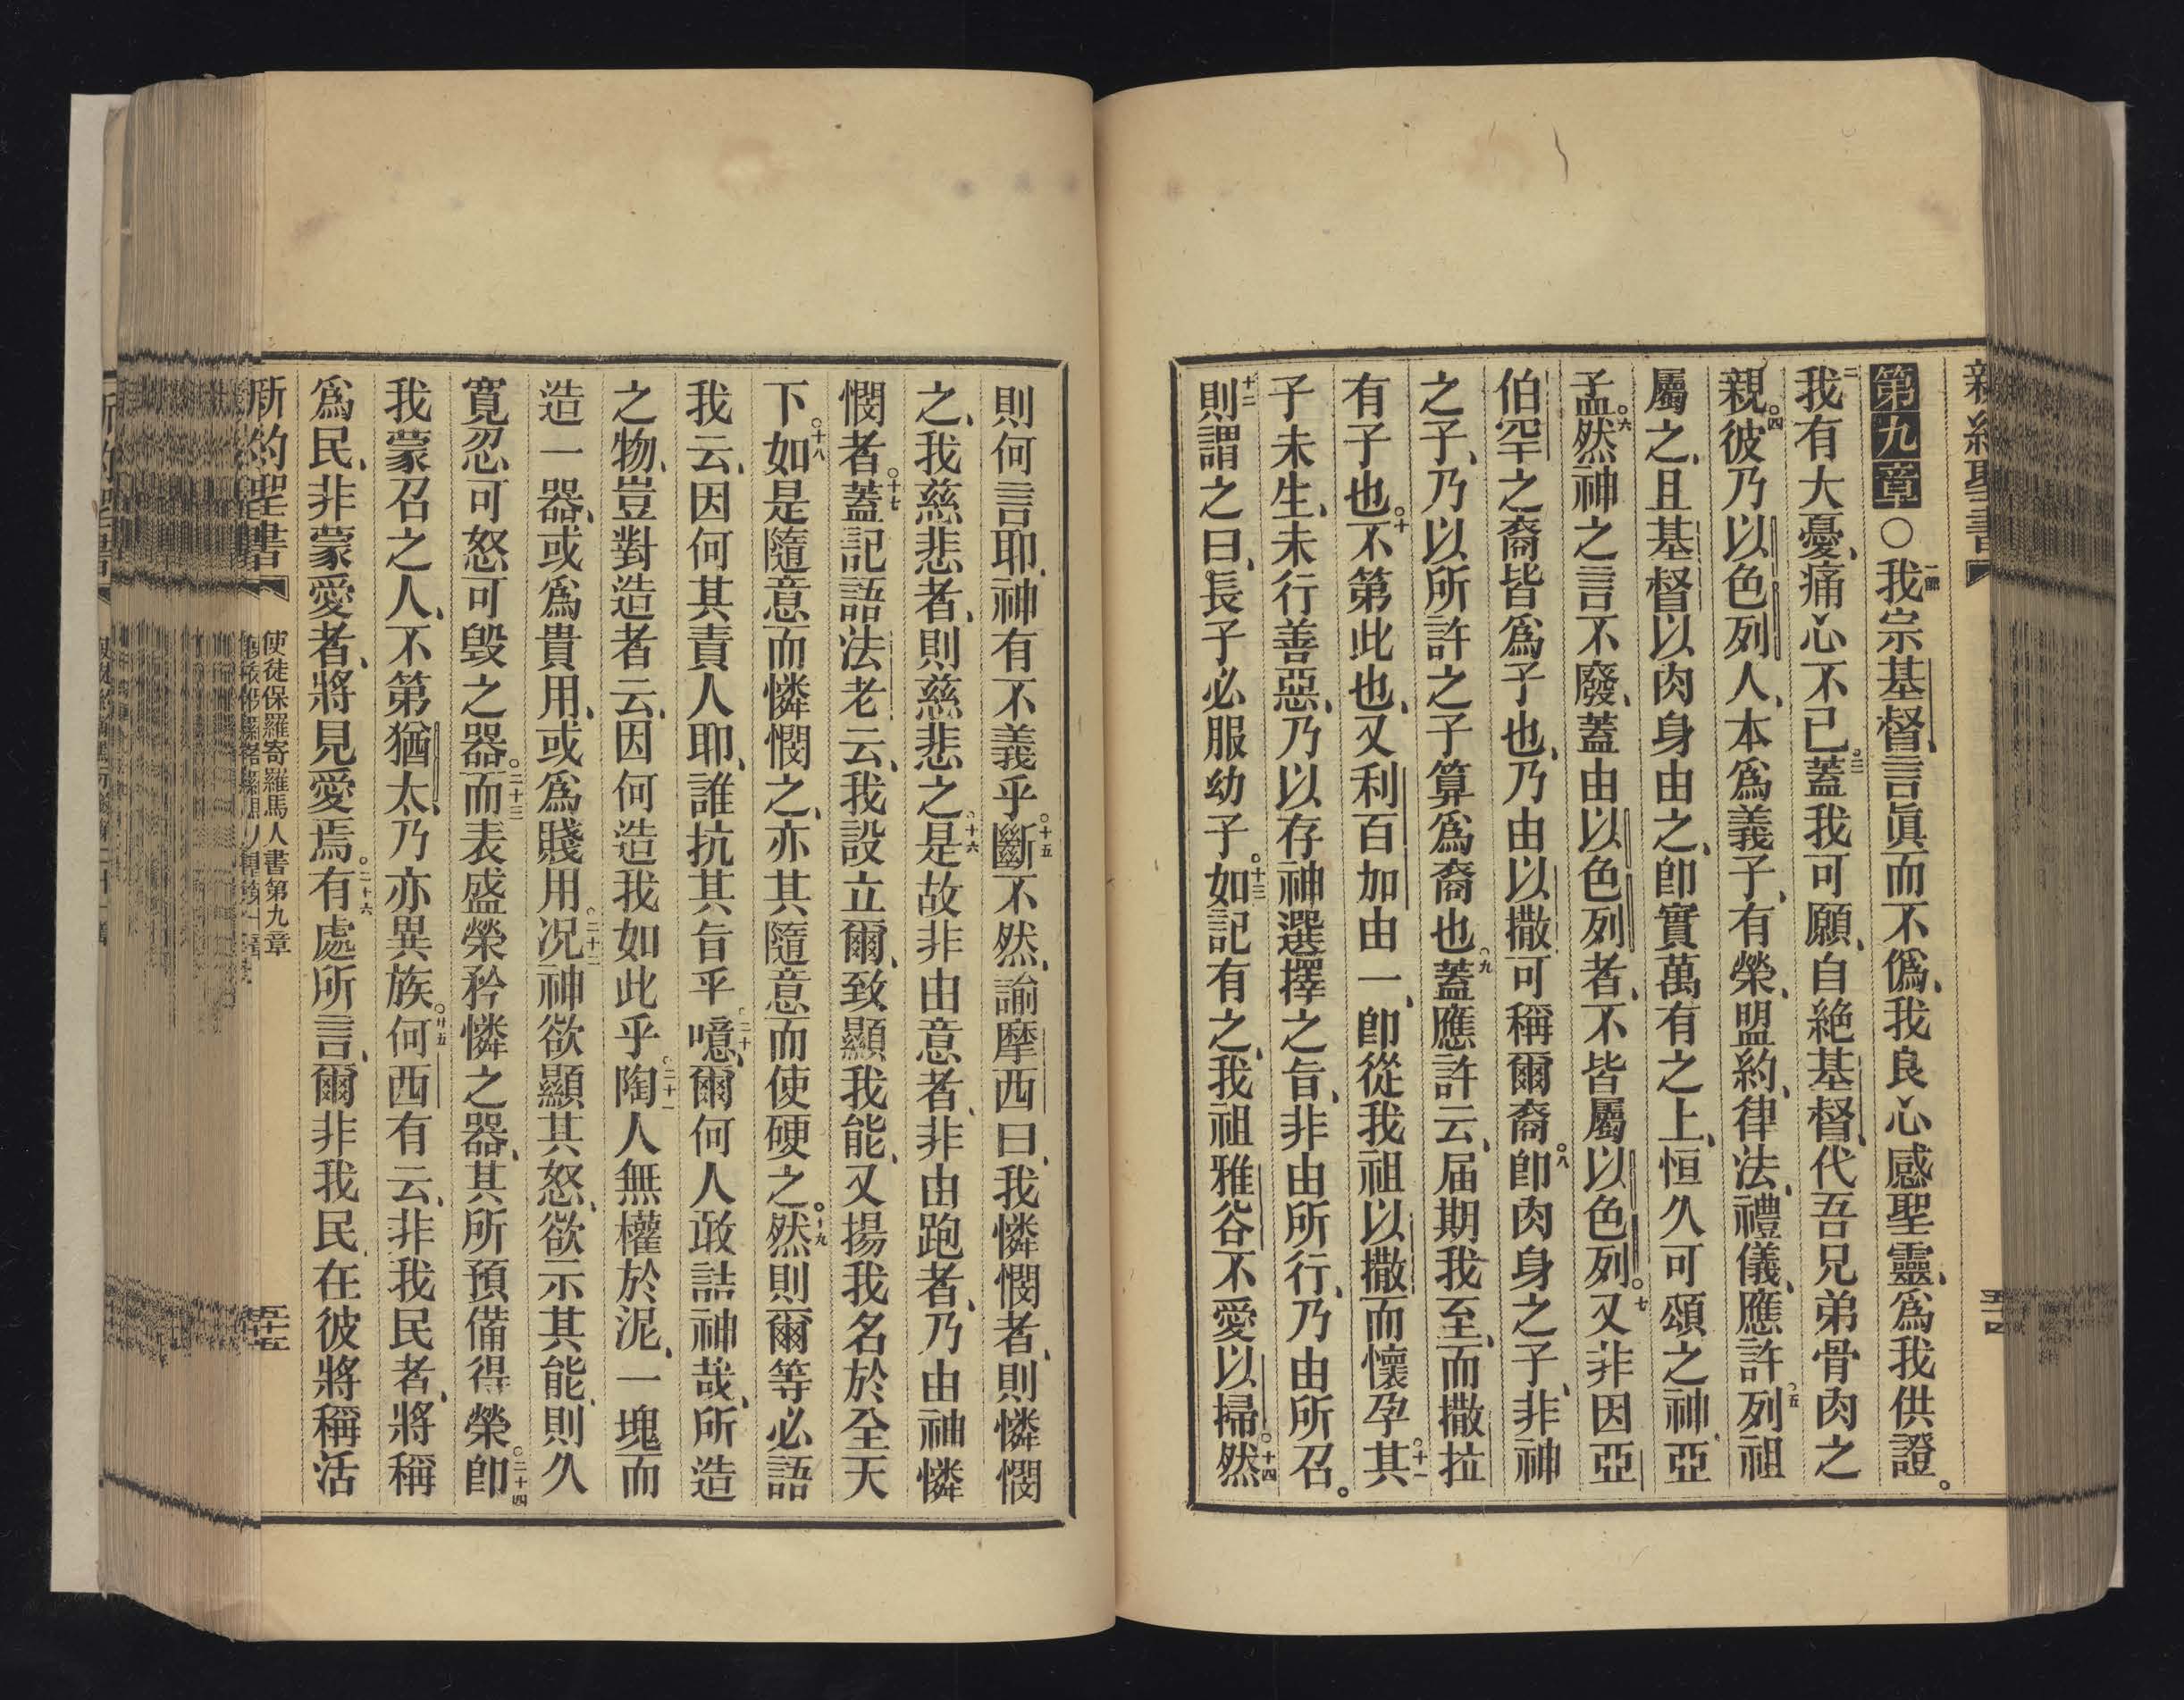 第九章○一節我宗基督、言眞而不僞、我良心感聖靈、爲我供證。
二我有大憂、痛心不已。三蓋我可願、自絶基督、代吾兄弟骨肉之
親。四彼乃以色列人、本爲義子、有榮、盟約、律法、禮儀、應許。五列祖
屬之、且基督以肉身由之、卽實萬有之上、恒久可頌之神、亞
孟。六然神之言不廢、蓋由以色列者、不皆屬以色列。七又非因亞
伯罕之裔皆爲子也、乃由以撒可稱爾裔。八卽肉身之子、非神
之子、乃以所許之子算爲裔也。九蓋應許云、届期我至、而撒拉
有子也。十不第此也、又利百加由一、卽從我祖以撒而懷孕。十一其
子未生、未行善惡、乃以存神選擇之旨、非由所行、乃由所召。
十二則謂之曰、長子必服幼子。十三如記有之、我祖雅谷不愛以掃。十四然
則何言耶、神有不義乎。十五斷不然、諭摩西曰、我憐憫者、則憐憫
之、我慈悲者、則慈悲之。十六是故非由意者、非由跑者、乃由神憐
憫者。十七蓋記語法老云、我設立爾、致顯我能、又揚我名於全天
下。十八如是隨意而憐憫之、亦其隨意而使硬之。十九然則爾等必語
我云、因何其責人耶、誰抗其旨乎。二十噫、爾何人敢詰神哉、所造
之物、豈對造者云、因何造我如此乎。二十一陶人無權於泥、一塊而
造一器、或爲貴用、或爲賤用。二十二况神欲顯其怒、欲示其能、則久
寛忍可怒可毀之器。二十三而表盛榮矜憐之器、其所預備得榮。二十四卽
我蒙召之人、不第猶太、乃亦異族。廿五何西有云、非我民者、將稱
爲民、非蒙愛者、將見愛焉。二十六有處所言、爾非我民、在彼將稱活
新約聖書
使徒保羅寄羅馬人書第九章
五十五